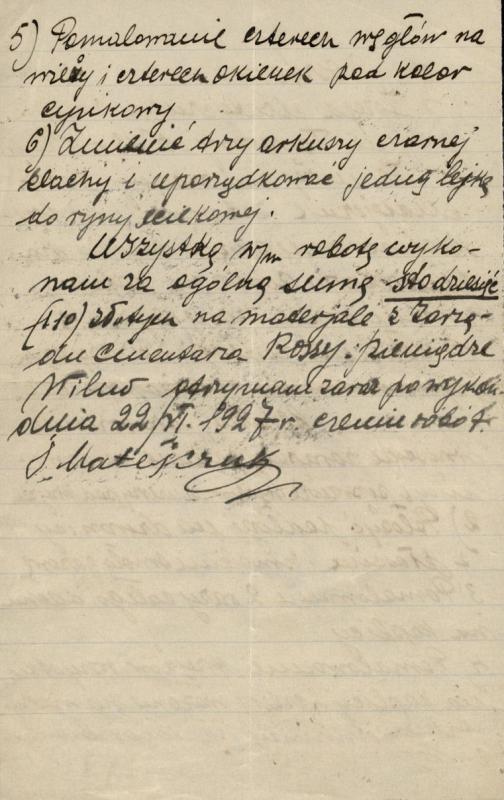 5) Pomalowanie czterech węgłów na
wieży i czterech okienek pod kolor
cynkowy
6) Zmienić trzy arkuszy czarnej
blachy i uporządkować jedną lejkę
do ryny ściekowej.
Wszystką w/m robotę wyko-
nam za ogólną sumę stodziesięć
(110) złotych na materjale z Zarzą-
du cmentarza Rossy. Pieniądze
Wilno otrzymam zaraz po wykoń-
dnia 22/VI. 1927 r. czeniu robót.
J. Matejczuk